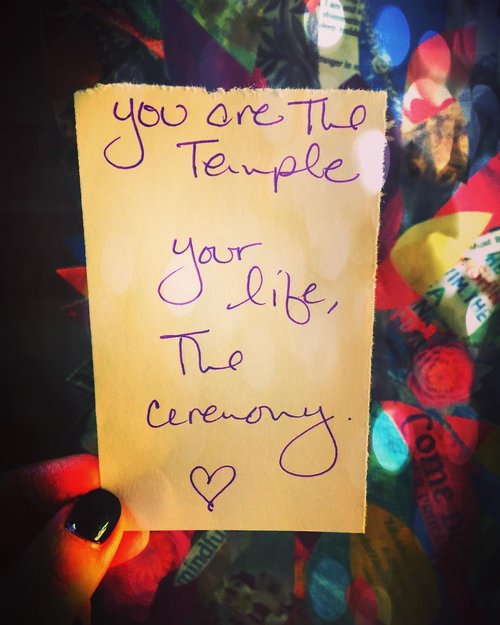 you are The
Temple
your
life,
The
ceremony.
Come
mindful